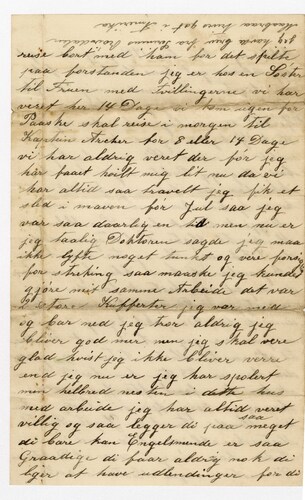 jeg havde brev fra Simon Reiersdalen
Aasbraa hans gat i Amerika
reise bort med ham for det spilte
paa forstanden jeg er hos en Søster
til Fruen med Tvillingerne vi har
veret her 14 Dage vi kom ugen før
Paaske skal reise i morgen til
Kaptein Archer for 8 eller 14 Dage
vi har aldrig veret der før jeg
har faaet hvilt mig lit nu da vi
har altid saa travelt jeg fik et
slid i maven før Jul saa jeg
var saa daarlig en tid men nu er
jeg taalig Doktoren sagde jeg maa
ikke løfte noget tunkt og vere forsigtig
for streking saa maaske jeg kunde
gjøre mit samme Arbeide det var
i store Kufferter jeg var med
og bare med jeg tror aldrig jeg
bliver god mer men jeg skal vere
glad hvist jeg ikke bliver verre
end jeg nu er jeg har spolert
min helbred nesten i dette hus
med arbeide jeg har altid veret
villig og saa legger di saa paa meget
di bare kan Engelsmende er saa
Graadige di faar aldrig nok di
liger at have udlendinger for di